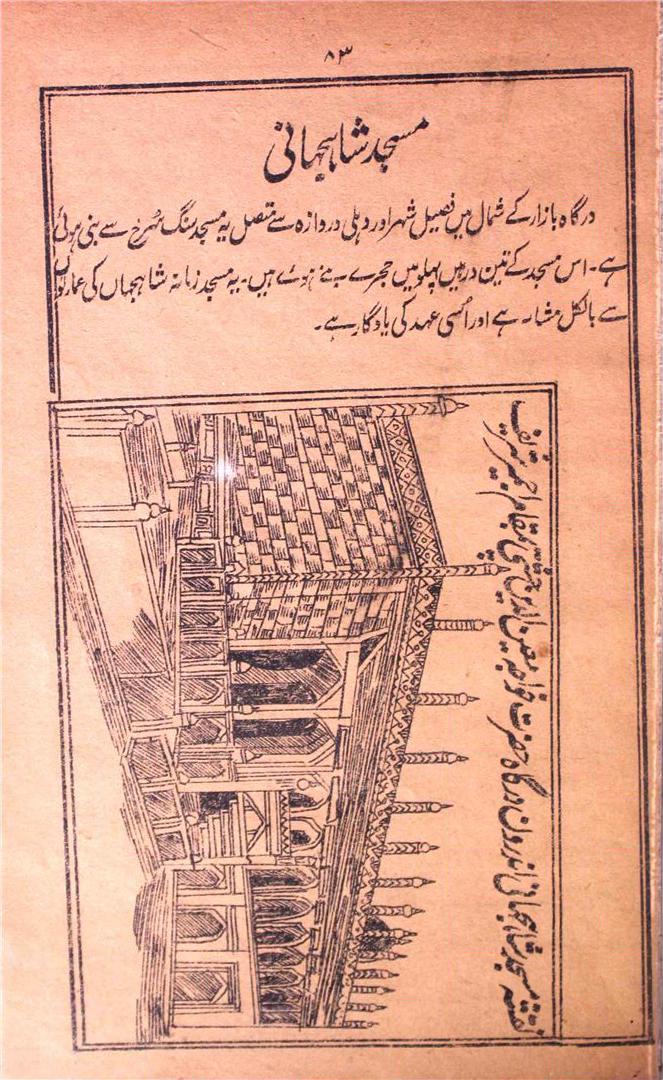 ۸۳
مسجد شاہجہانی
درگاہ بازار کے شمال میں فصیل شہر اور دہلی دروازہ سے متصل یہ مسجد سنگ سُرخ سے بنی ہوئی
ہے۔ اس مسجد کے تین در ہیں پہلو میں حجرے بنے ہوئے ہیں۔ یہ مسجد زمانہ شاہجہاں کی عمارتوں
سے بالکل مشابہ ہے اور اُسی عہد کی یادگار ہے۔
نقشہ مسجد شاہجہانی اندرون درگاہ حضرت خواجہ معین الدین چشتی بمقام اجمیر شریف